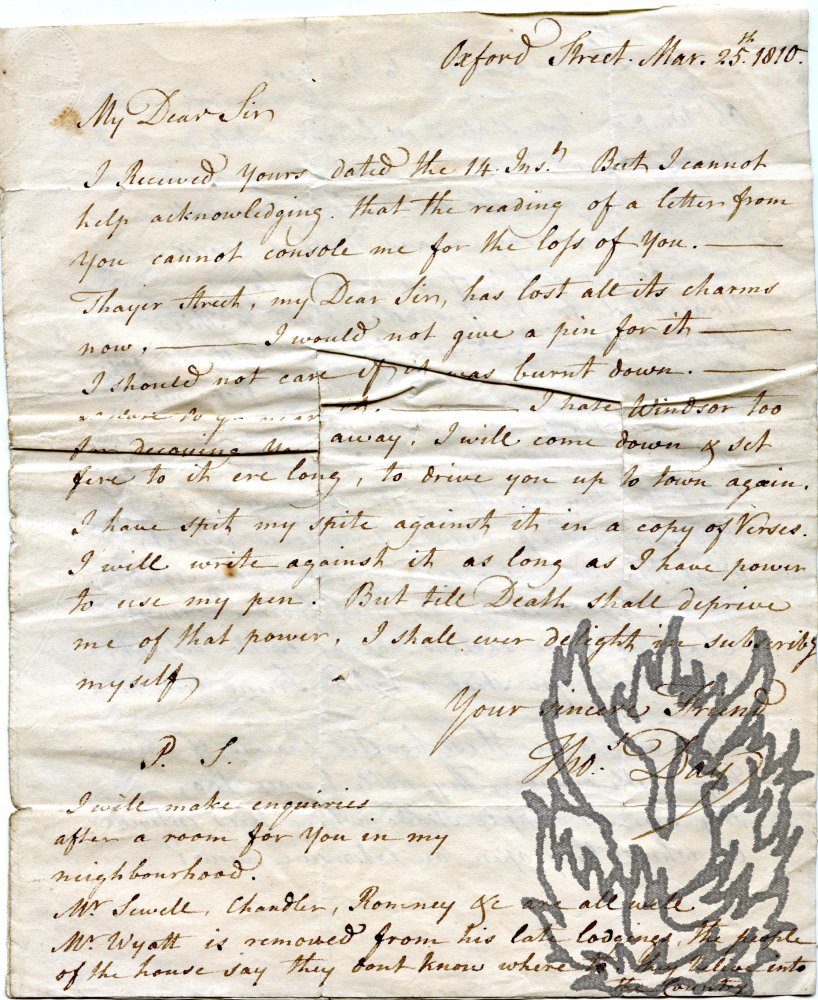 Oxford Street. Mar. 25th. 1810.
My Dear Sir
I Received yours dated the 14. Inst. But I cannot
help acknowledging that the reading of a letter from
you cannot console me for the loſs of You. —
Thayer Street, my Dear Sir, has lost all its charms
now. — I would not give a pin for it —
I should not care if it was burnt down. —
— I hate Windsor too
for decoying you away, I will come down & set
fire to it ere long, to drive you up to town again.
I have spit my spite against it in a copy of Verses.
I will write against it as long as I have power
to use my pen. But till Death shall deprive
me of that power, I shall ever delight in subscribg
myself
Your sincere Friend
Thos. Day
P. S.
I will make enquiries
after a room for You in my
neighbourhood.
Mr Sewell, Chandler, Romney &c are all well
Mr Wyatt is removed from his late lodgings, the people
of the house say they dont know where to. they believe into
the Country